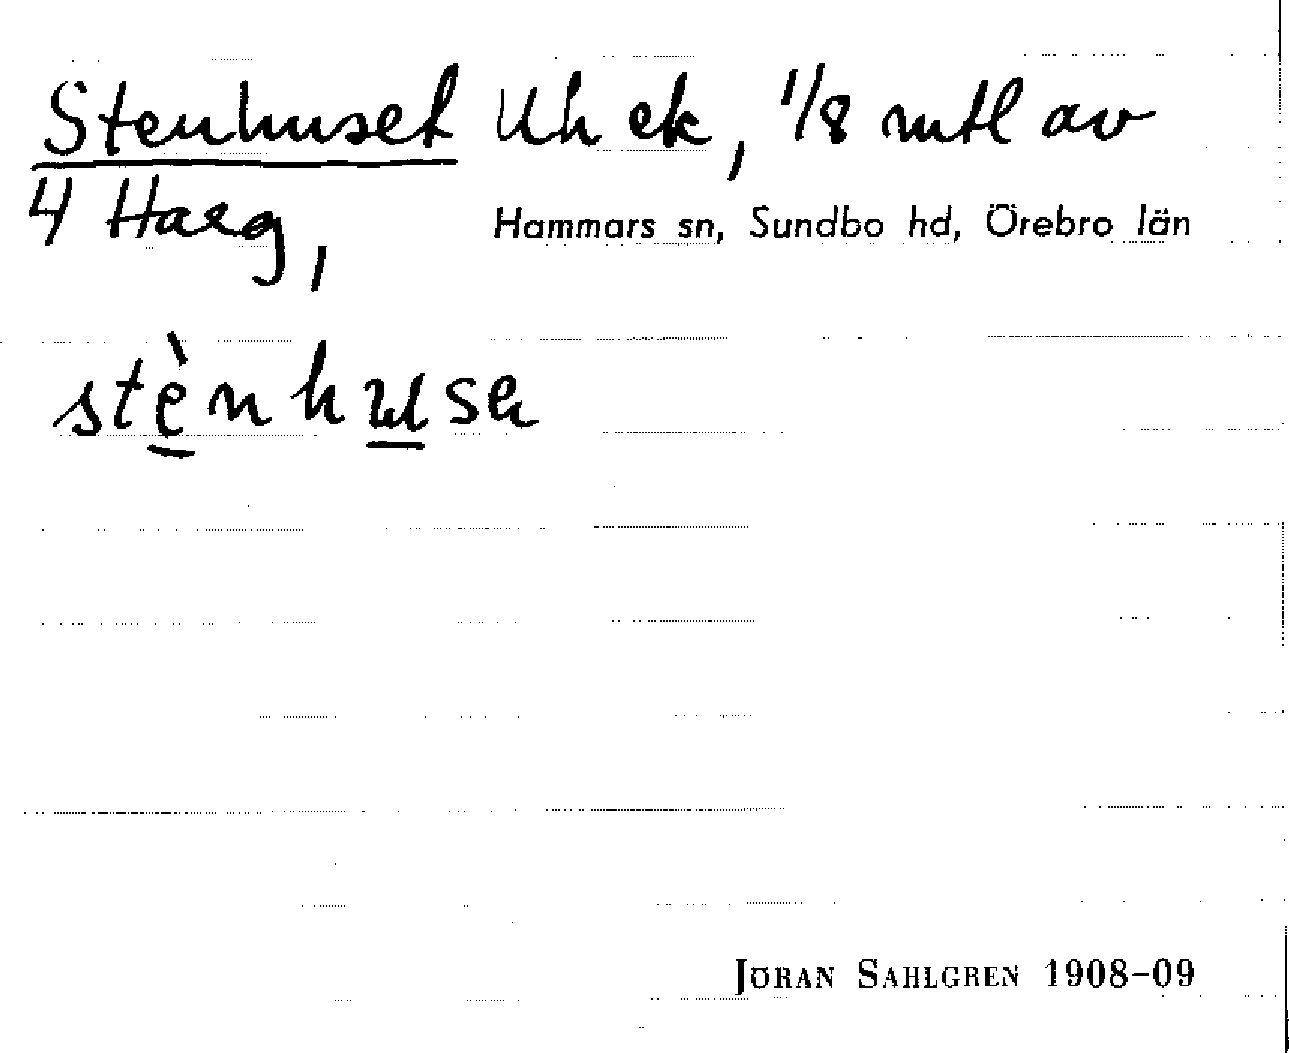 Stenhuset Uh ek, 1/8 mtl av
4 Harg, Hammars sn, Sundbo hd, Örebro län
stè̱nhu̱sa
JÖRAN SAHLGREN 1908-09